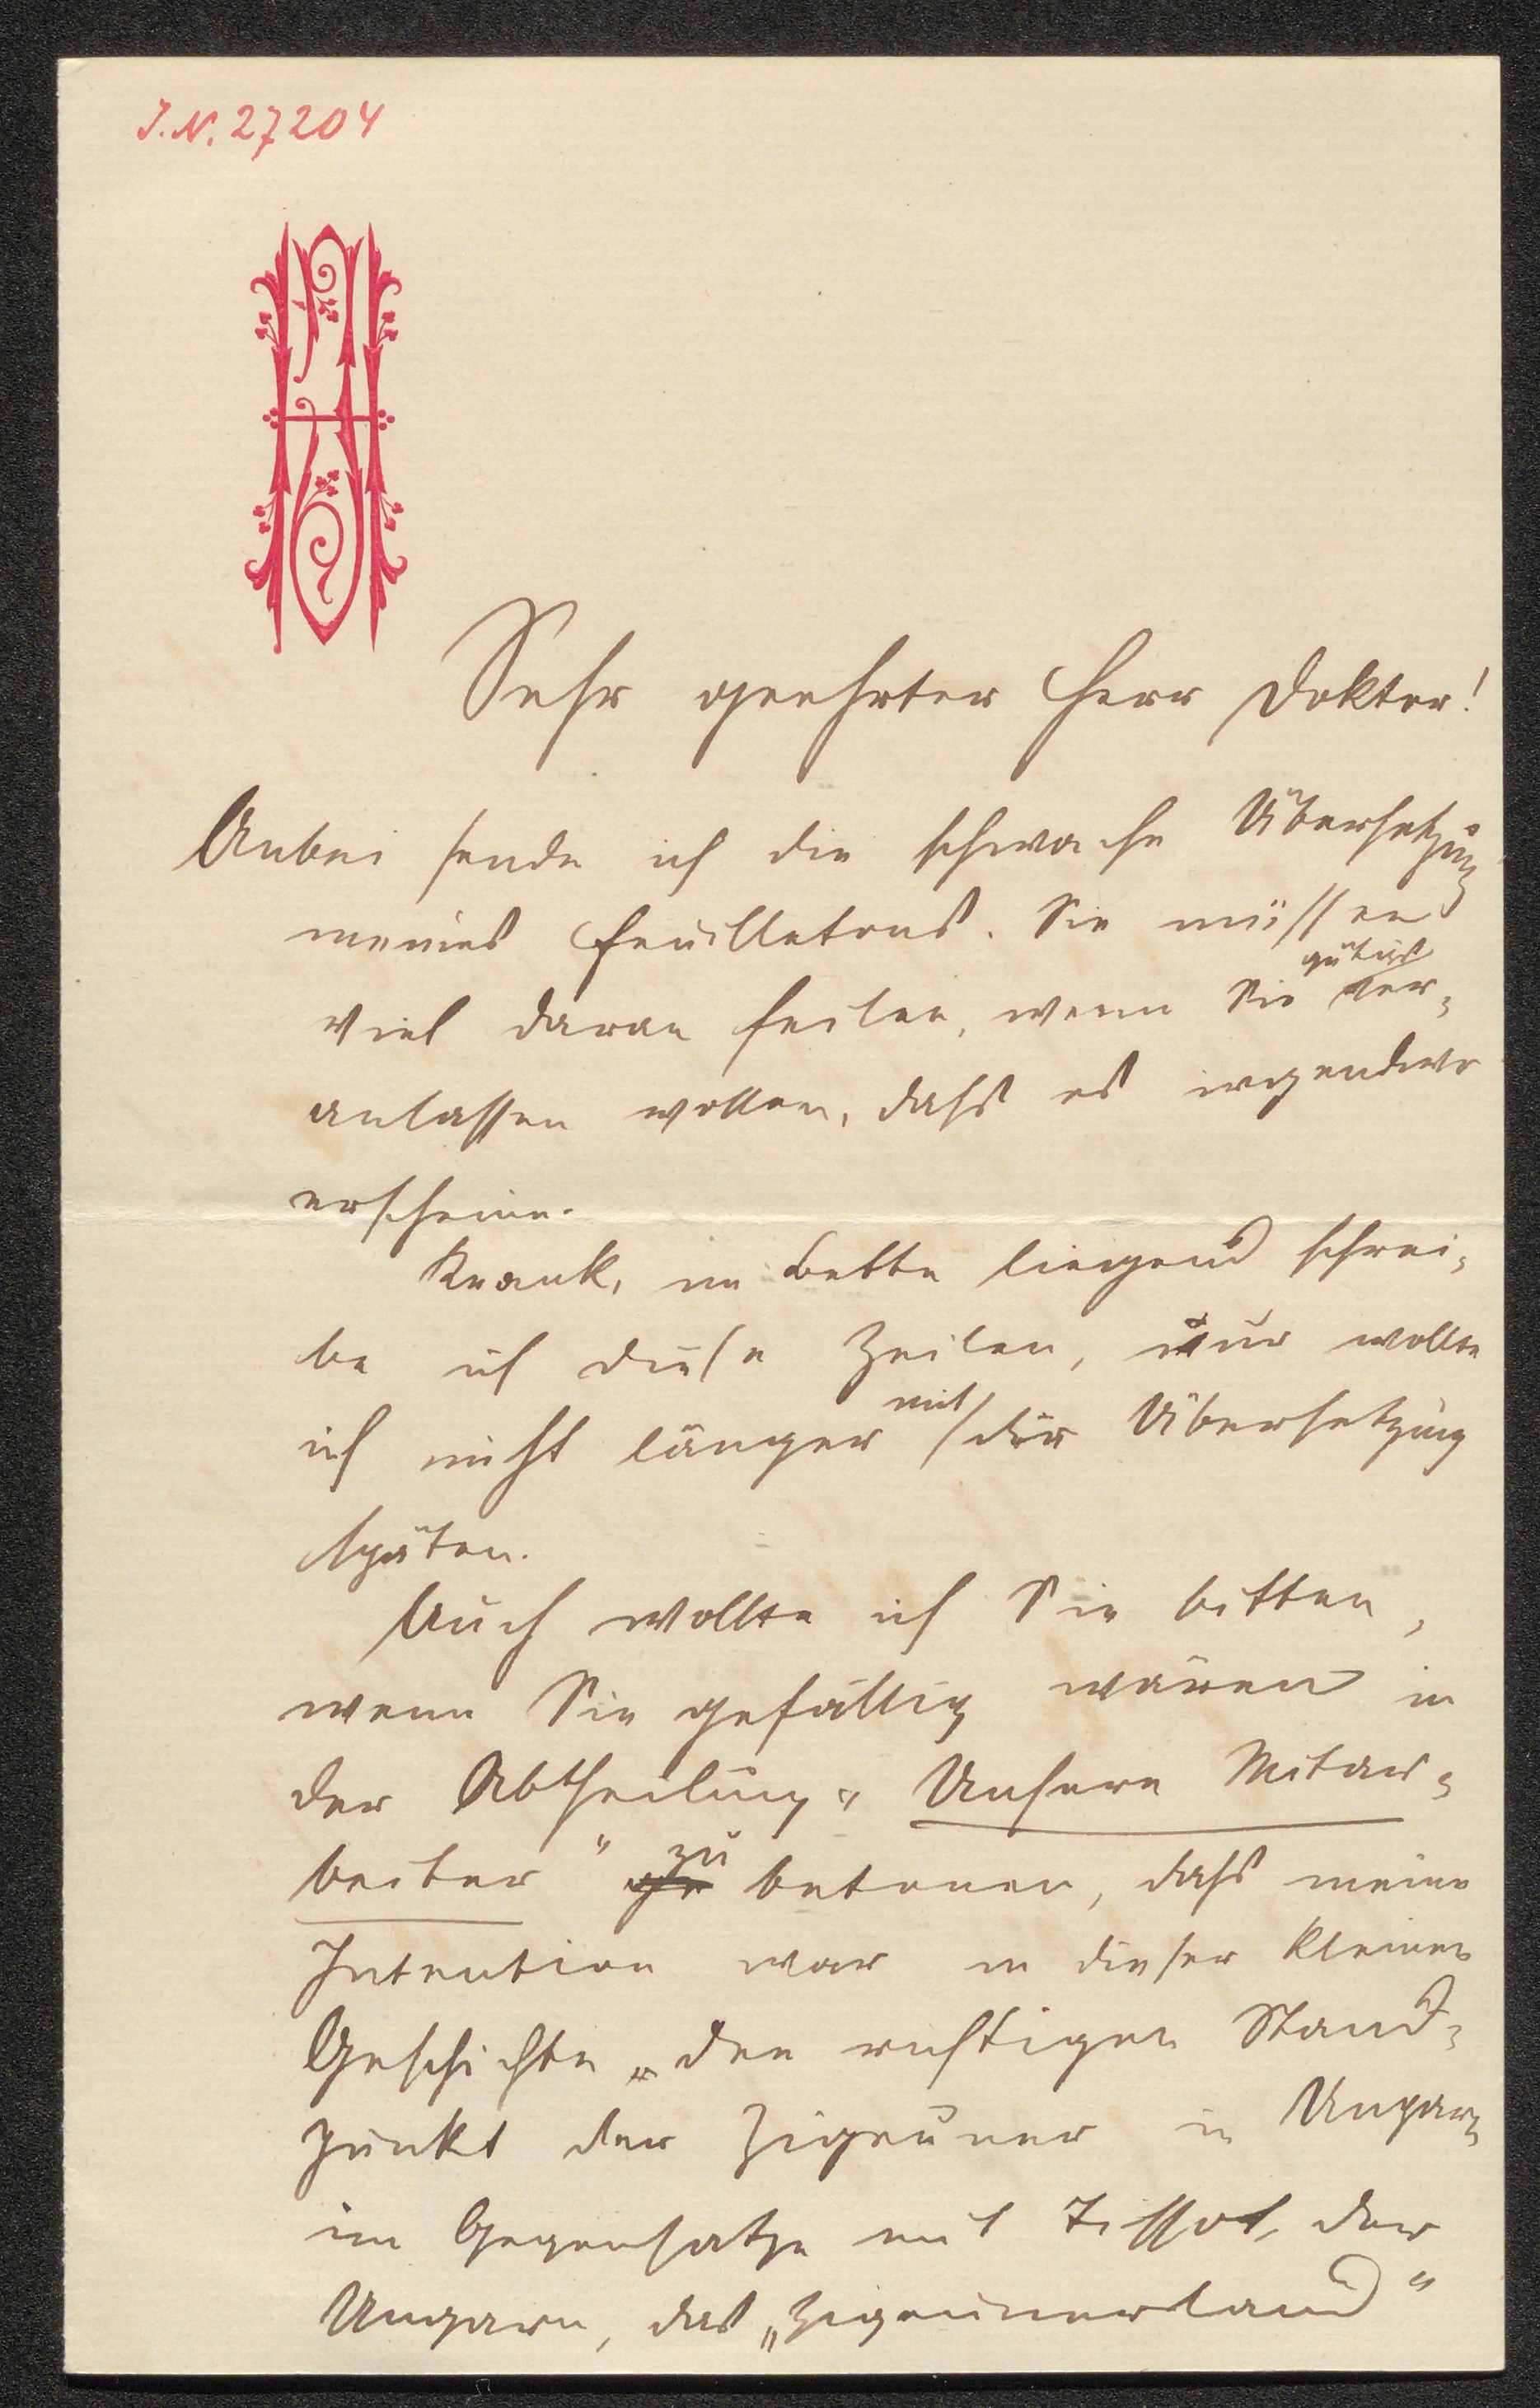 J.N. 27204
Sehr geehrter Herr Doktor!
Anbei sende ich die schwache Übersetzung
meines Feuilletons. Sie müssen
viel daran feilen, wenn Sie gütigst ver-
anlassen wollen, daſs es irgendwo
erscheine.
Krank, im Bette liegend schrei-
be ich diese Zeilen, nur wollte
ich nicht länger mit der Übersetzung
späten.
Auch wollte ich Sie bitten,
wenn Sie gefällig wären in
der Abtheilung „Unsere Mitar-
beiter" zu betonen, daſs meine
Intention war in dieser kleinen
Geschichte „den richtigen Stand-
punkt der Zigeuner in Ungarn
im Gegensatze mit Tissot, der
Ungarn, das „Zigeunerland"